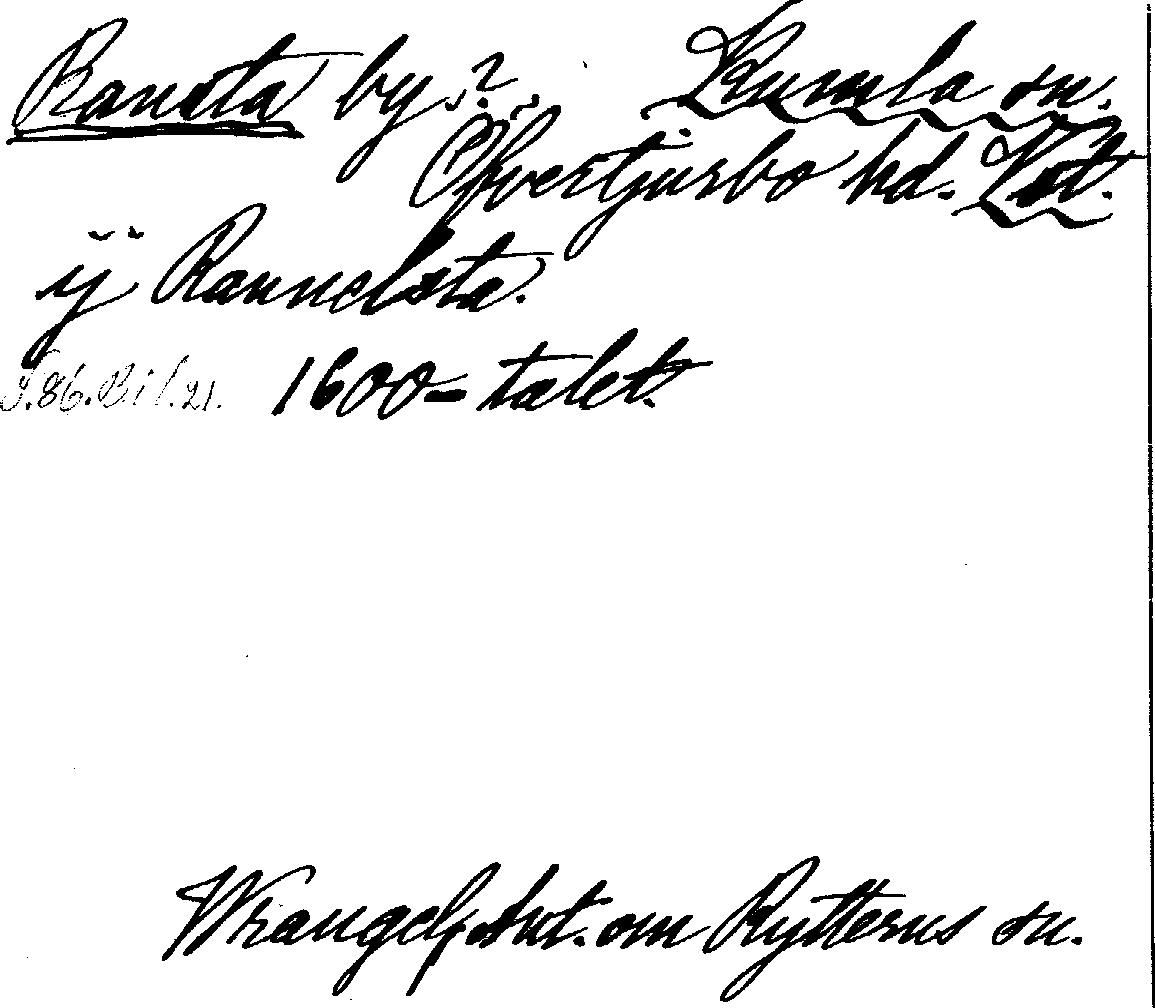 Ransta by? Kumla sn.
Öfvertjurbo hd. Vst.
ij Rannelsta.
S.86.Bil.21. 1600-talet.
Wrangel, Ant. om Rytterns sn.